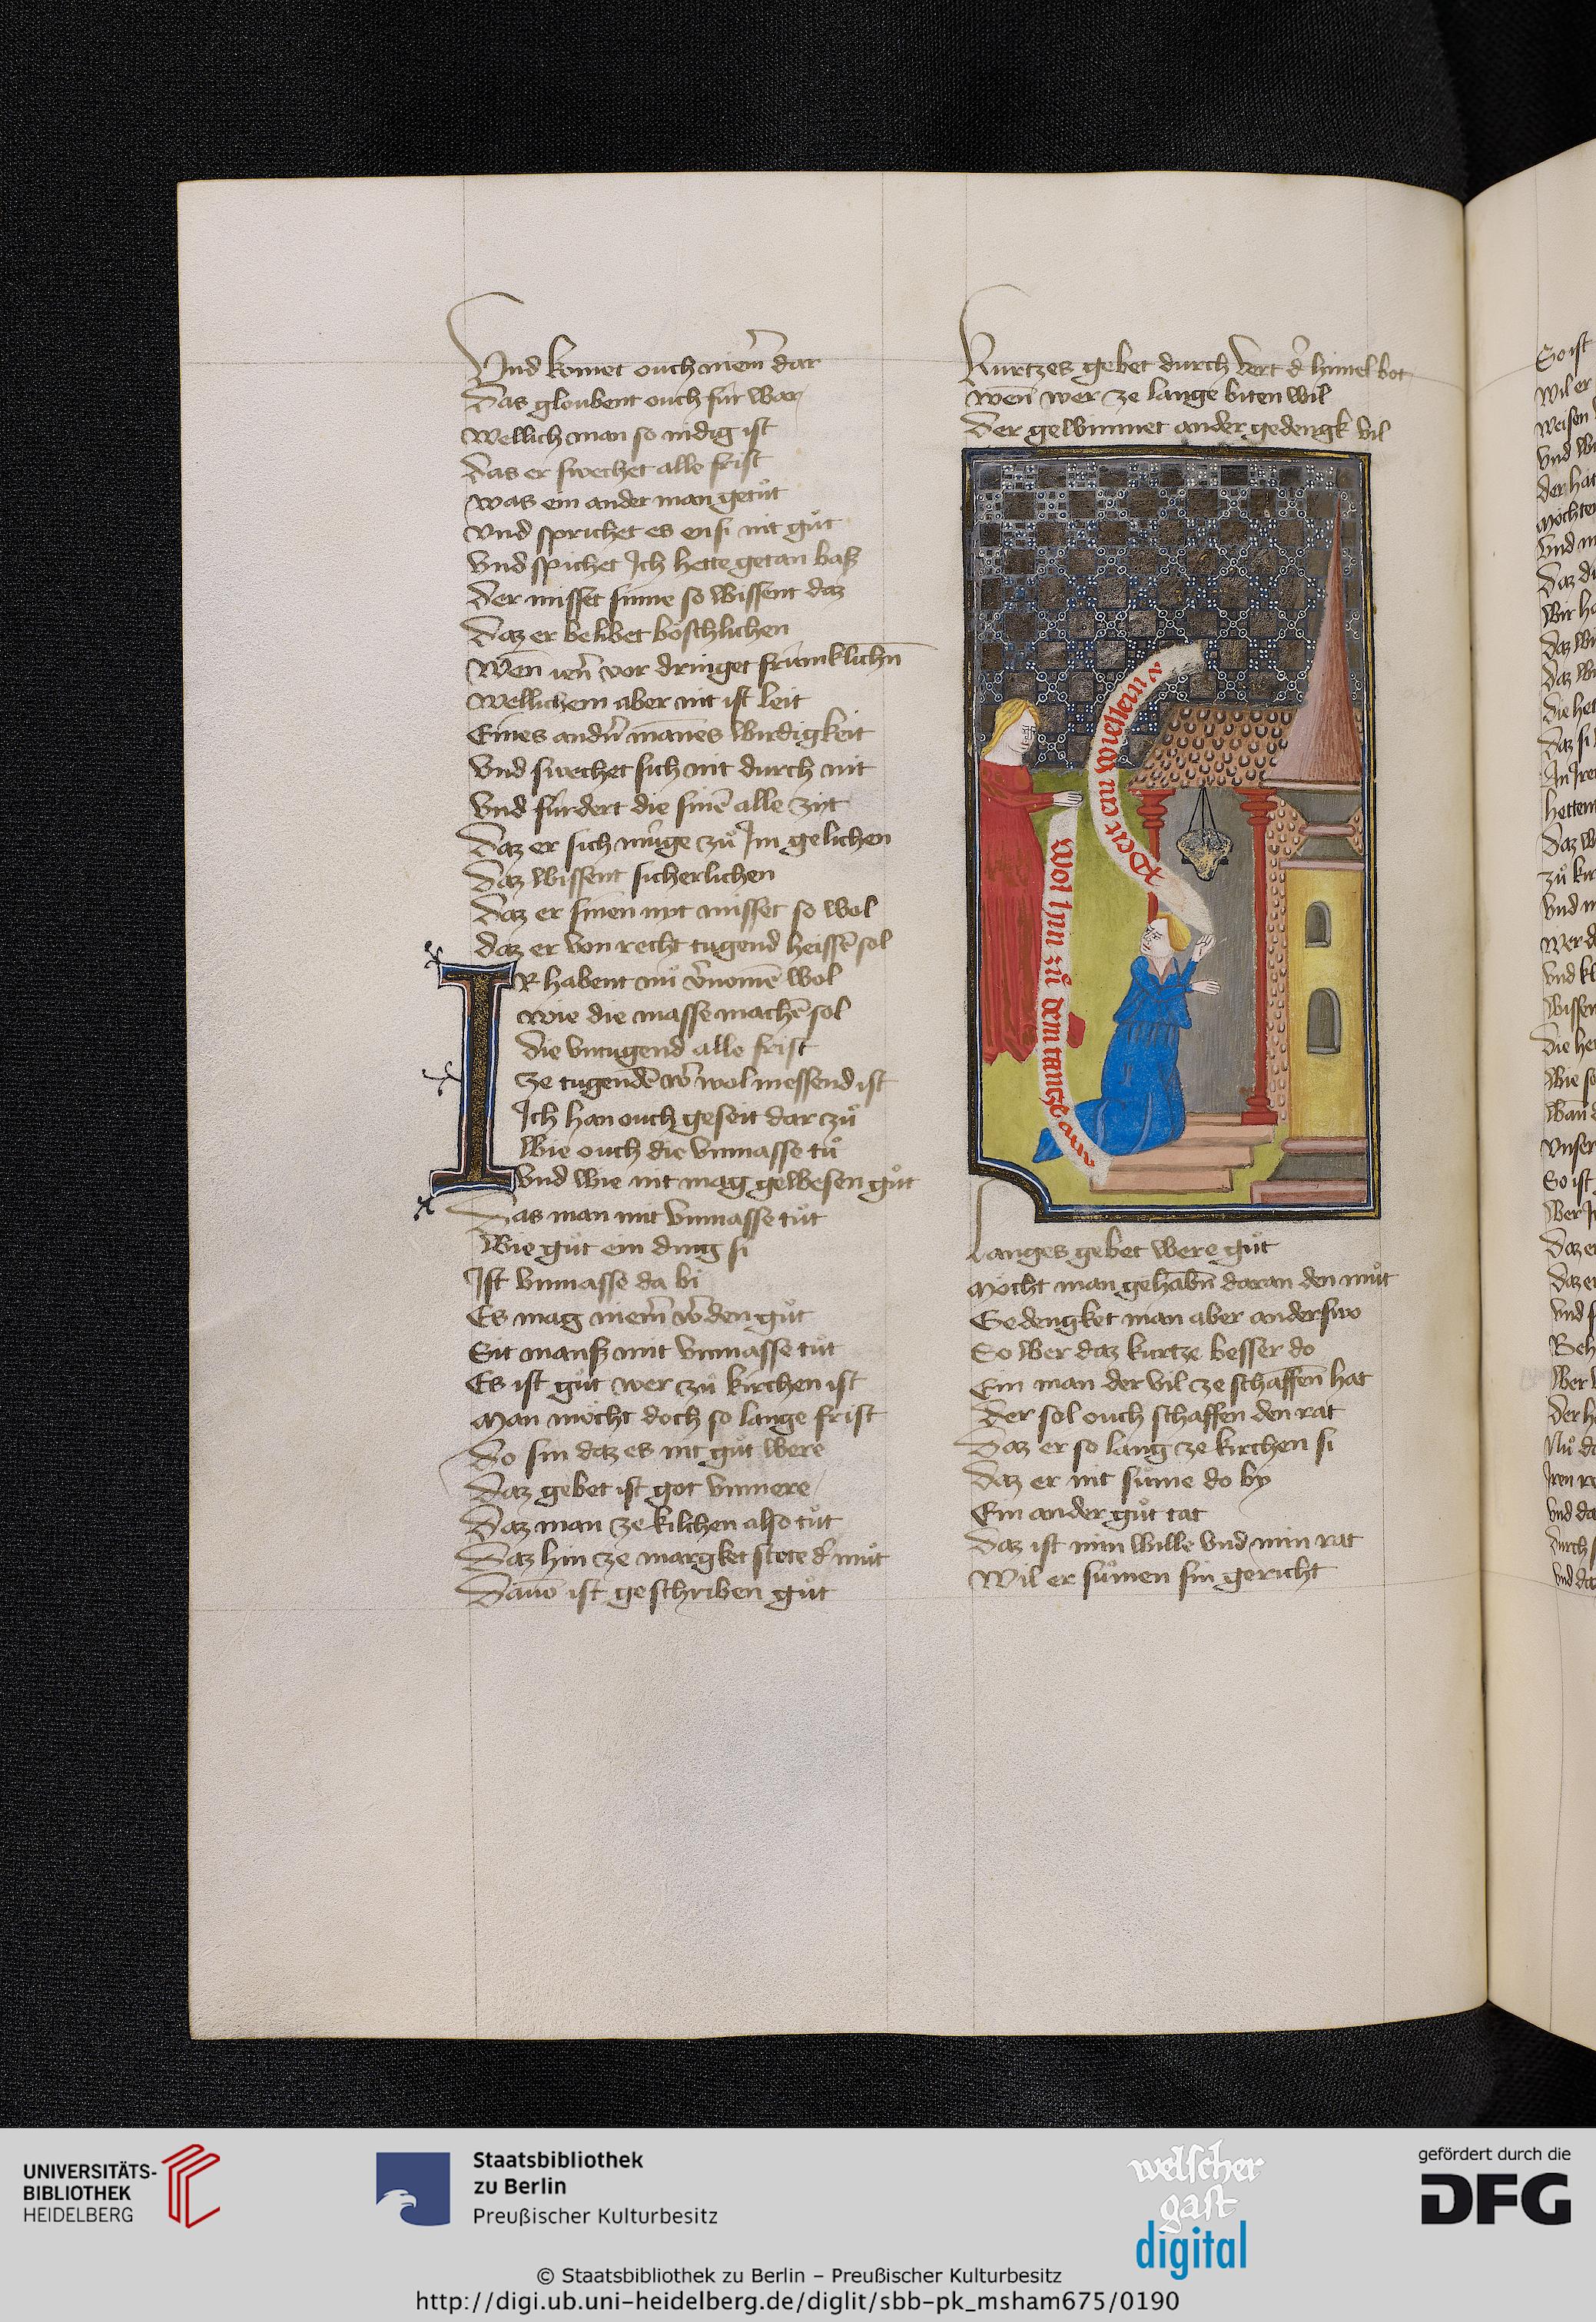 Vnd komet ouch niem̄ dar
Das gloubent ouch fúr war
Wellich man so nidig ist
Das er swechet alle frist
Was ein ander man getůt
Vnd sprichet es ensi nit gůt
Vnd spichet Ich hette getan baß
Der misset sinne so wissent daz
Daz er belibet böschlichen
Wen̄ ien̄ vor dringet frúmklichn̄
Wellichem aber nit ist leit
Eines andn̄ man̄es wirdigkeit
Vnd swechet sich nit durch nit
Vnd fúrdert die sinē alle zyt
Daz er sich múge zů Im gelichen
Daz wissent sicherlichen
Daz er sinen nyt misset so wol
daz er von recht tugend heissē sol
IR habent nů v̄nomē wol
wie die masse machē sol
die vntugend alle frist
ze tugendē w̄ wol messend ist
Ich han ouch geseit dar zů
Wie ouch die vnmasse tů
Vnd wie nit mag gewesen gůt
Das man mit vnmasse tůt
Wie gůt ein ding si
Ist vnmasse da bi
Es mag niem̄ w̄den gůt
Sit manß mit vnmasse tůt
Es ist gůt wer zů kirchen ist
Man möcht doch so lange frist
Do sin daz es nit gůt were
Daz gebet ist got vnmere
Daz man ze kilchen also tůt
Daz hin ze margket stete d̄ můt
Dauō ist geschriben gůt
Kurtzes gebet durch vert d̄ himel bot
wen̄ wer ze lange biten wil
Der gewinnet ander gedengk vil
Wol hin zů dem tantze
Langes gebet were gůt
Möcht man gehabn̄ daran den můt
Gedengket man aber anderswo
So wer daz kurtze besser do
Ein man der vil ze schaffen̄ hat
Der sol ouch schaffen den rat
Daz er so lang ze kirchen si
Daz er nit sůme do by
Ein ander gůt tat
Daz ist min wille vnd min rat
Wil er sůmen sin gericht
So ist
Wil er
Weisen
Vnd
Der hat
Möchte
Vnd
Daz
Wir
Daz
Daz
Die het
Daz si
An Ire
Hetten
Daz
Zů
Vnd
Wer
Vnd
Wissen
Die he
Wie
Wan̄
Vnser
So ist
Wer
Daz er
Daz er
Vnd
Beh
Wer
Der
Nů
Iren
Vnd da
Durch
Vnd
UNIVERSITÄTS-
BIBLIOTHEK
HEIDELBERG
Staatsbibliothek
zu Berlin
Preußischer Kulturbesitz
welscher
gast
digital
gefördert durch die
DFG
© Staatsbibliothek zu Berlin – Preußischer Kulturbesitz
http://digi.ub.uni-heidelberg.de/diglit/sbb-pk_msham675/0190